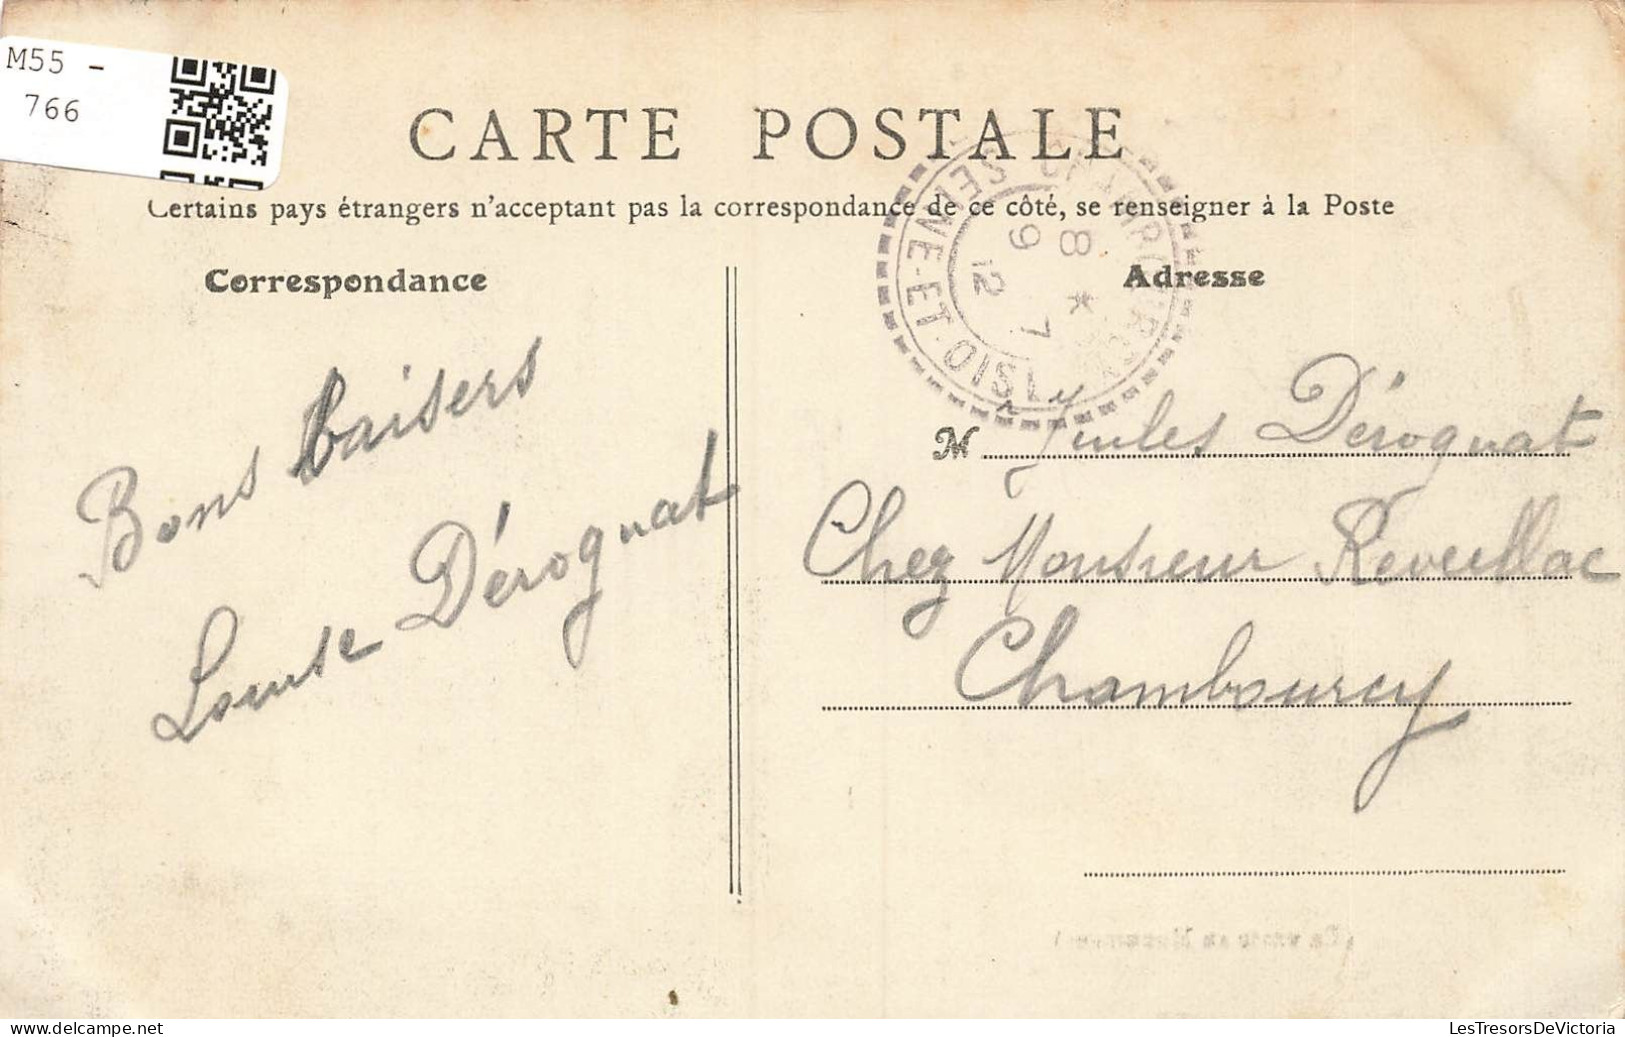 M55 -
766
CARTE POSTALE
Certains pays étrangers n'acceptant pas la correspondance de ce côté, se renseigner à la Poste
Correspondance
Adresse
SEINE-ET-OISE
8 *
9 7
12
Bons baisers
Louise Déroguat
M Jules Déroguat
Chez Monsieur Reveillac
Chambourcy
delcampe.net
LesTresorsDeVictoria